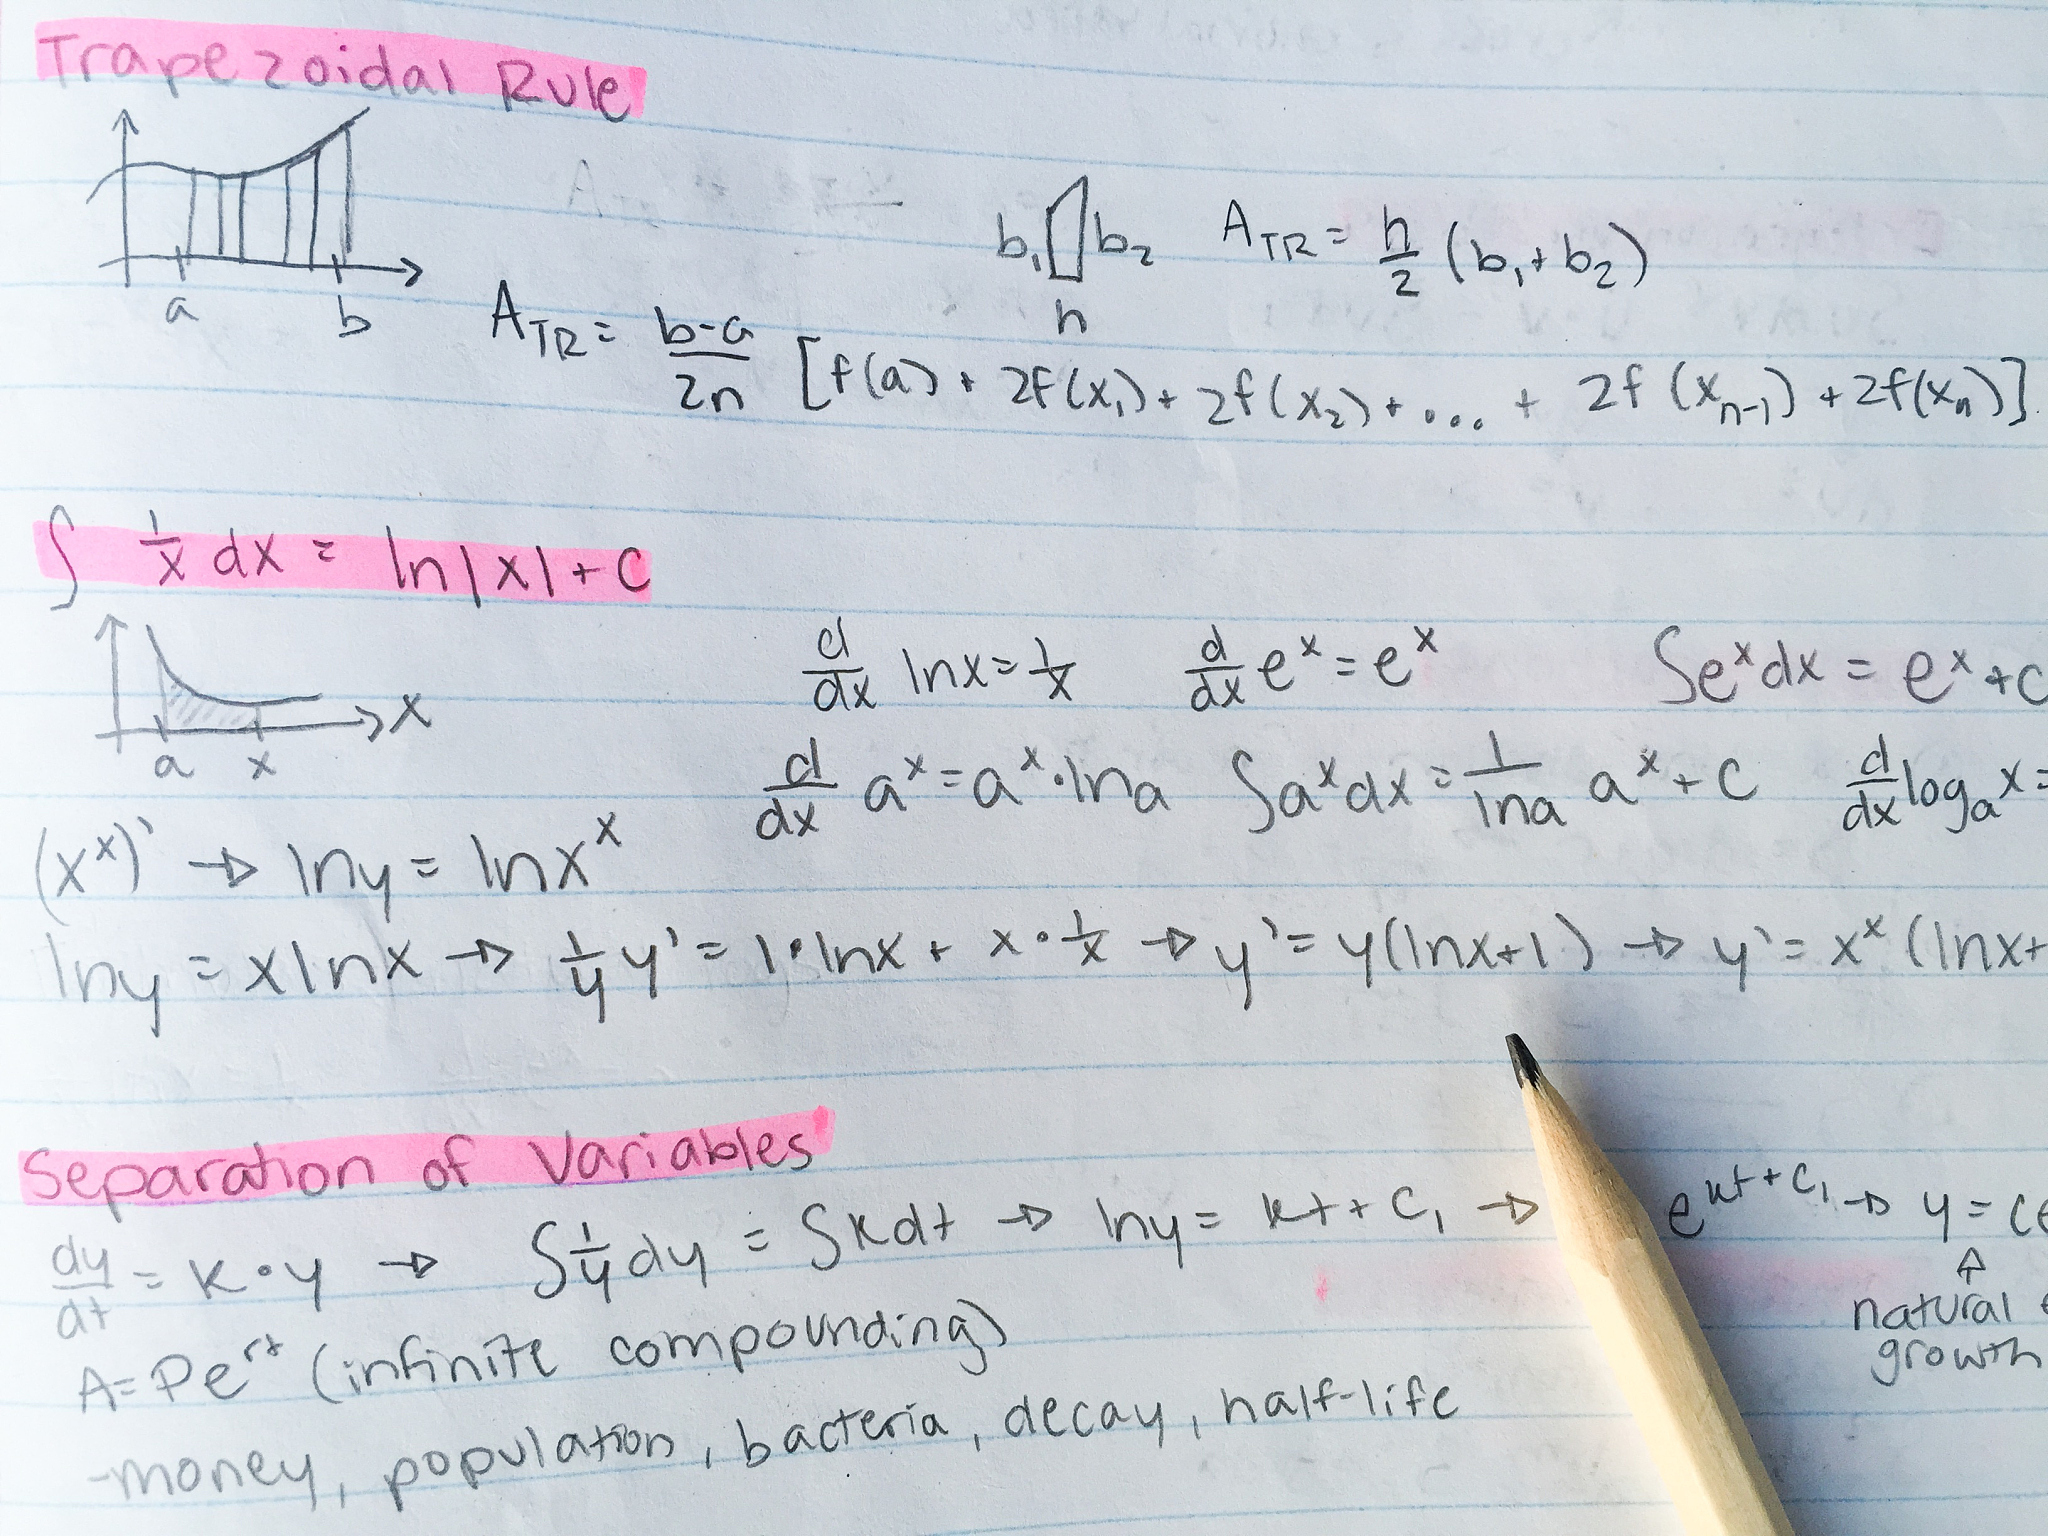 Trapezoidal Rule
b₁ b₂ A_TR = h/2 (b₁ + b₂)
h
a b
A_TR = b-a/2n [f(a) + 2f(x₁) + 2f(x₂) + ... + 2f(xₙ₋₁) + 2f(xₙ)]
∫ 1/x dx = ln|x| + C
d/dx ln x = 1/x d/dx eˣ = eˣ ∫eˣdx = eˣ + C
x
a x
d/dx aˣ = aˣ · ln a ∫aˣdx = 1/ln a aˣ + C d/dx logₐ x =
(xˣ)' → ln y = ln xˣ
ln y = x ln x → 1/y y' = 1 · ln x + x · 1/x → y' = y(ln x + 1) → y' = xˣ (ln x +
Separation of Variables
dy/dt = k · y → ∫ 1/y dy = ∫ k dt → ln y = kt + C₁ → e^(kt + C₁) → y = Ce
natural
growth
A = Pe^(rt) (infinite compounding)
-money, population, bacteria, decay, half-life